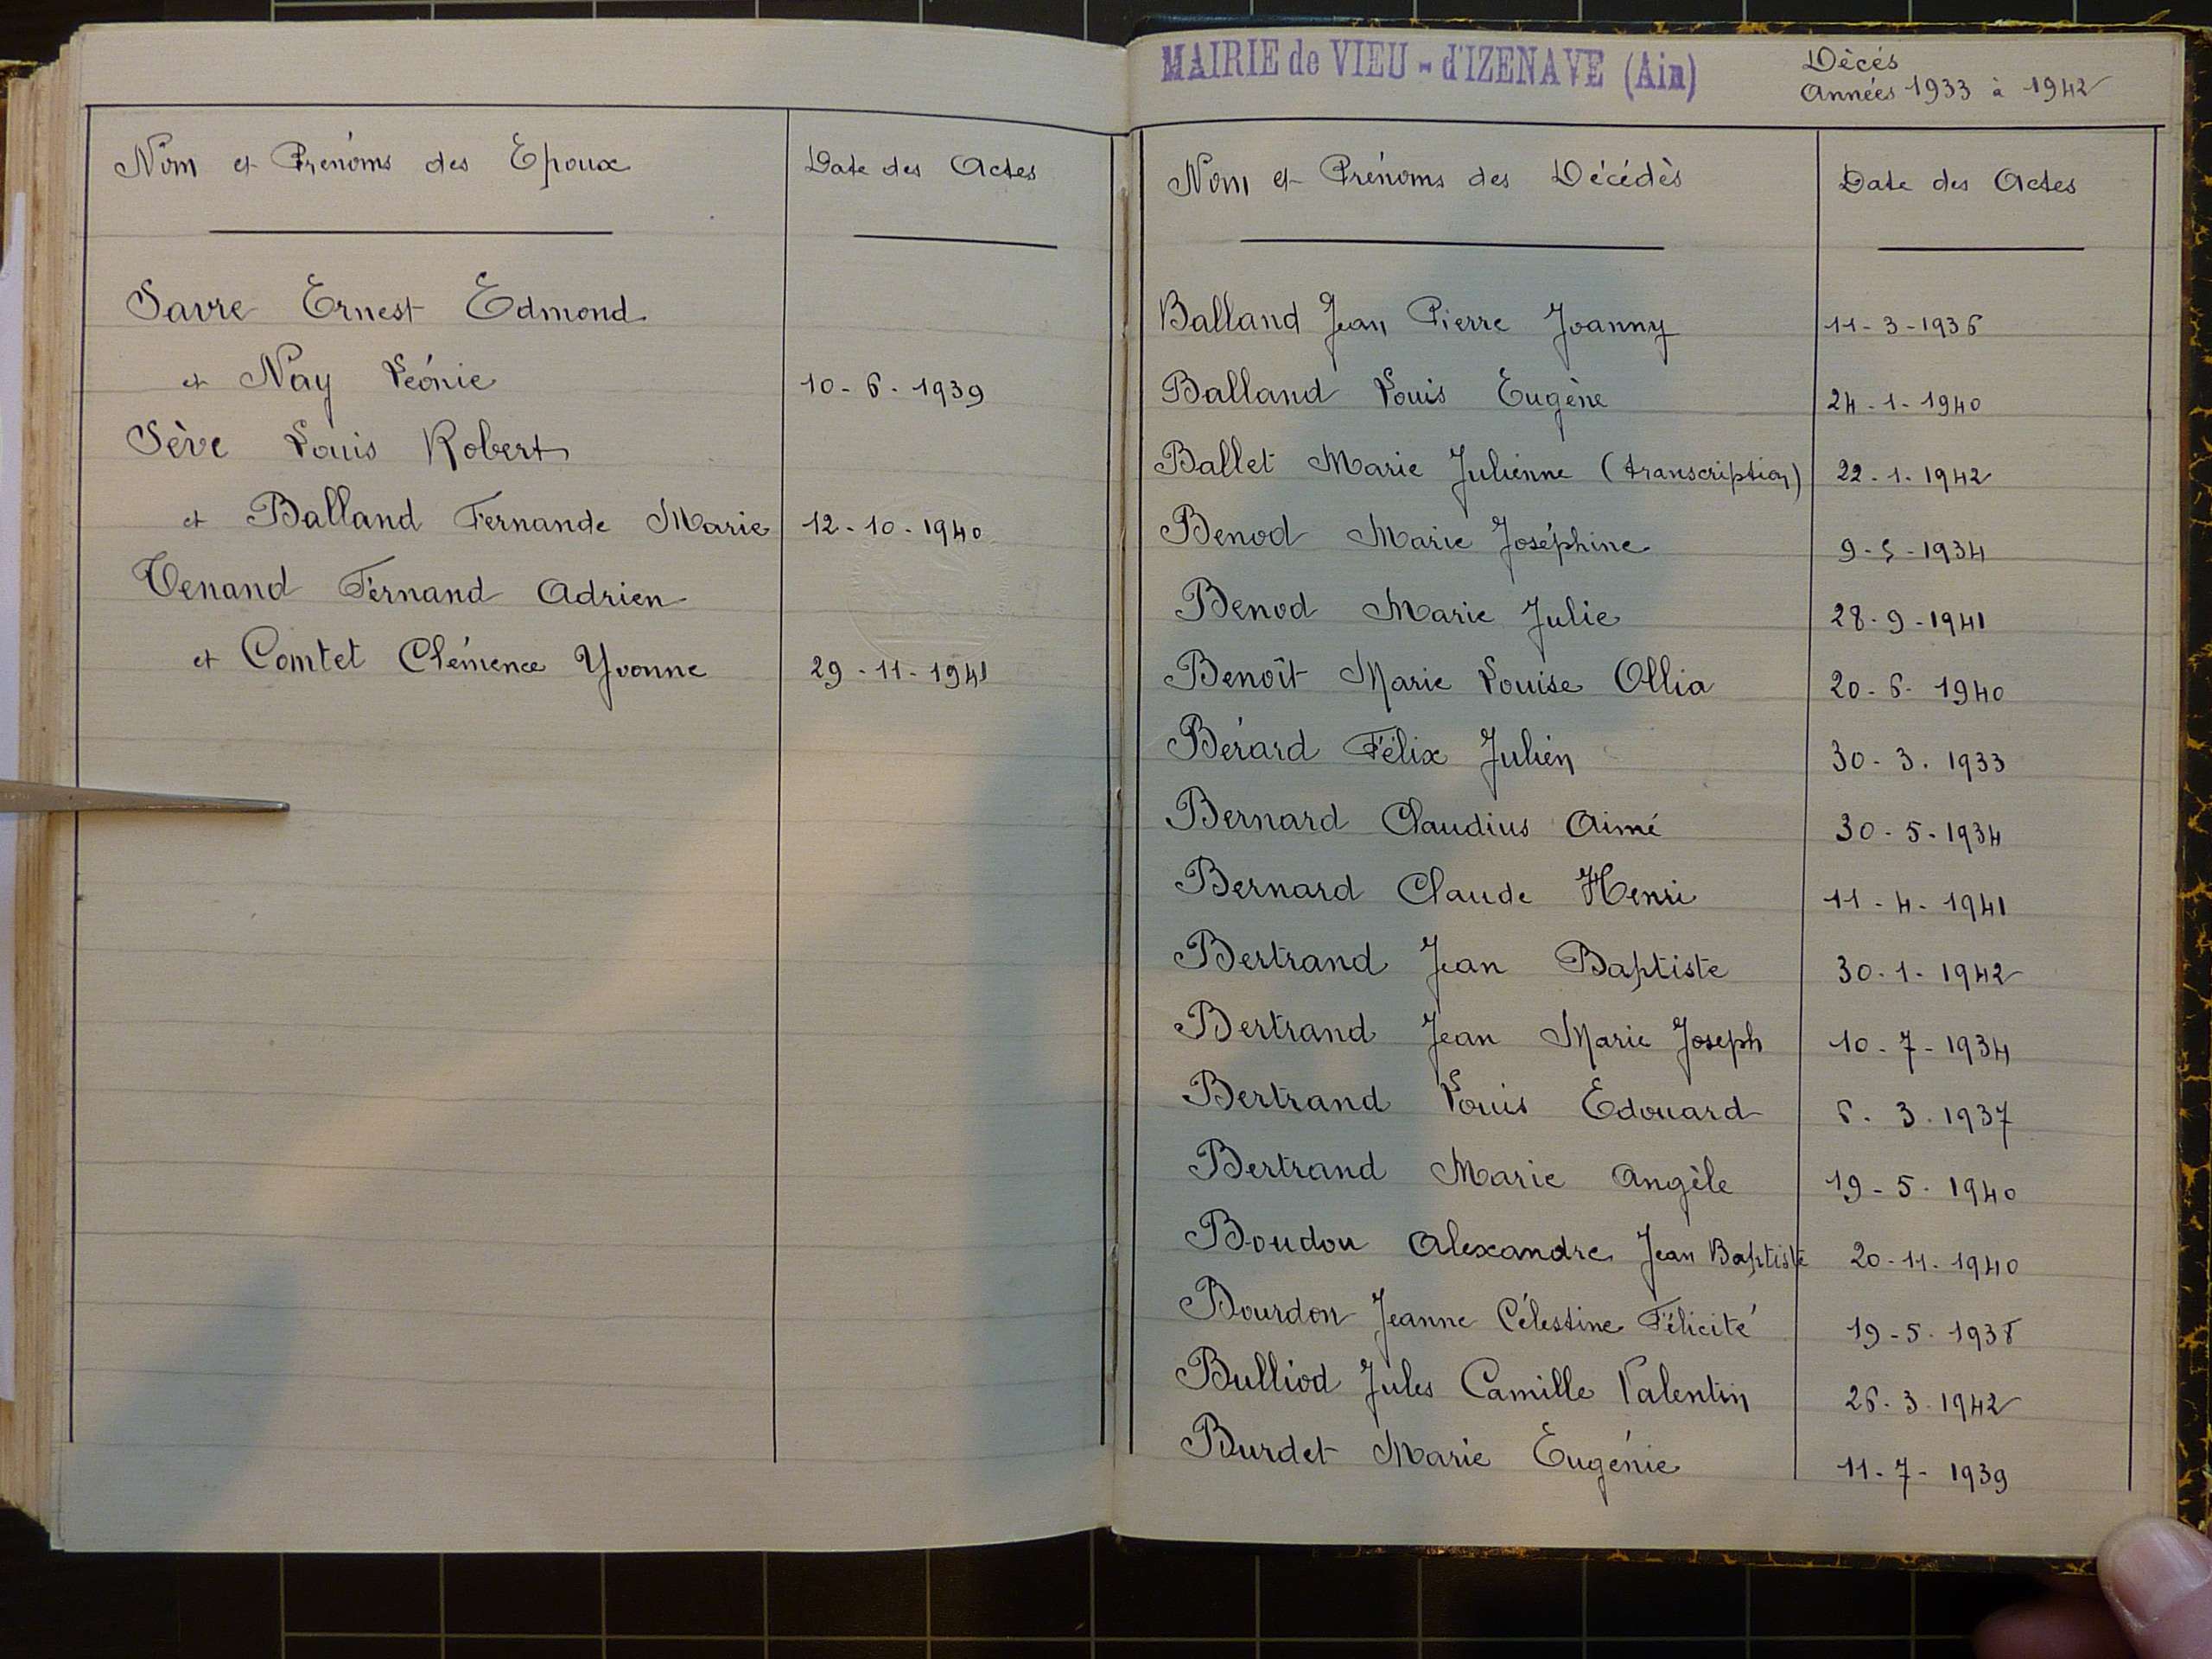 Nom et Prénoms des Epoux
Date des Actes
Savre Ernest Edmond
et Nay Léonie 10-6-1939
Sève Louis Robert
et Balland Fernande Marie 12-10-1940
Tenand Fernand Adrien
et Comtet Clémence Yvonne 29-11-1941
MAIRIE de VIEU-d'IZENAVE (Ain)
Dècés
Années 1933 à 1942
Nom et Prénoms des Décédès
Date des Actes
Balland Jean Pierre Joanny 11-3-1936
Balland Louis Eugène 24-1-1940
Ballet Marie Julienne (transcription) 22-1-1942
Benod Marie Joséphine 9-5-1934
Benod Marie Julie 28-9-1941
Benoît Marie Louise Ollia 20-6-1940
Bérard Félix Julien 30-3.1933
Bernard Claudius Aimé 30-5-1934
Bernard Claude Henri 11-4-1941
Bertrand Jean Baptiste 30-1-1942
Bertrand Jean Marie Joseph 10-7-1934
Bertrand Louis Edouard 6-3.1937
Bertrand Marie Angèle 19-5-1940
Boudon Alexandre Jean Baptiste 20-11-1940
Bourdon Jeanne Célestine Félicité 19-5-1938
Bulliod Jules Camille Valentin 26-3-1942
Burdet Marie Eugénie 11-7-1939